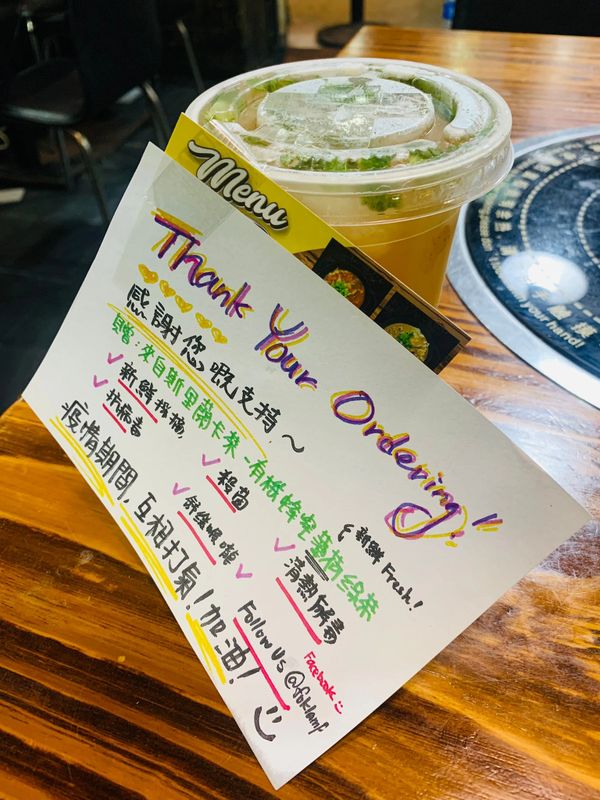 Menu
Thank Your Ordering!!
感謝您嘅支持~
員贈: 來自斯里蘭卡茶-有機蜂兜薄荷綠茶
新鮮 Fresh!
✓ 新鮮找換,
✓ 殺菌
✓ 清熱解毒
✓ 抗病毒
✓ 舒緩喉嚨
✓
疫情期間,互相打氣!加油!
Follow Us @foklamf
Facebook
your hand!